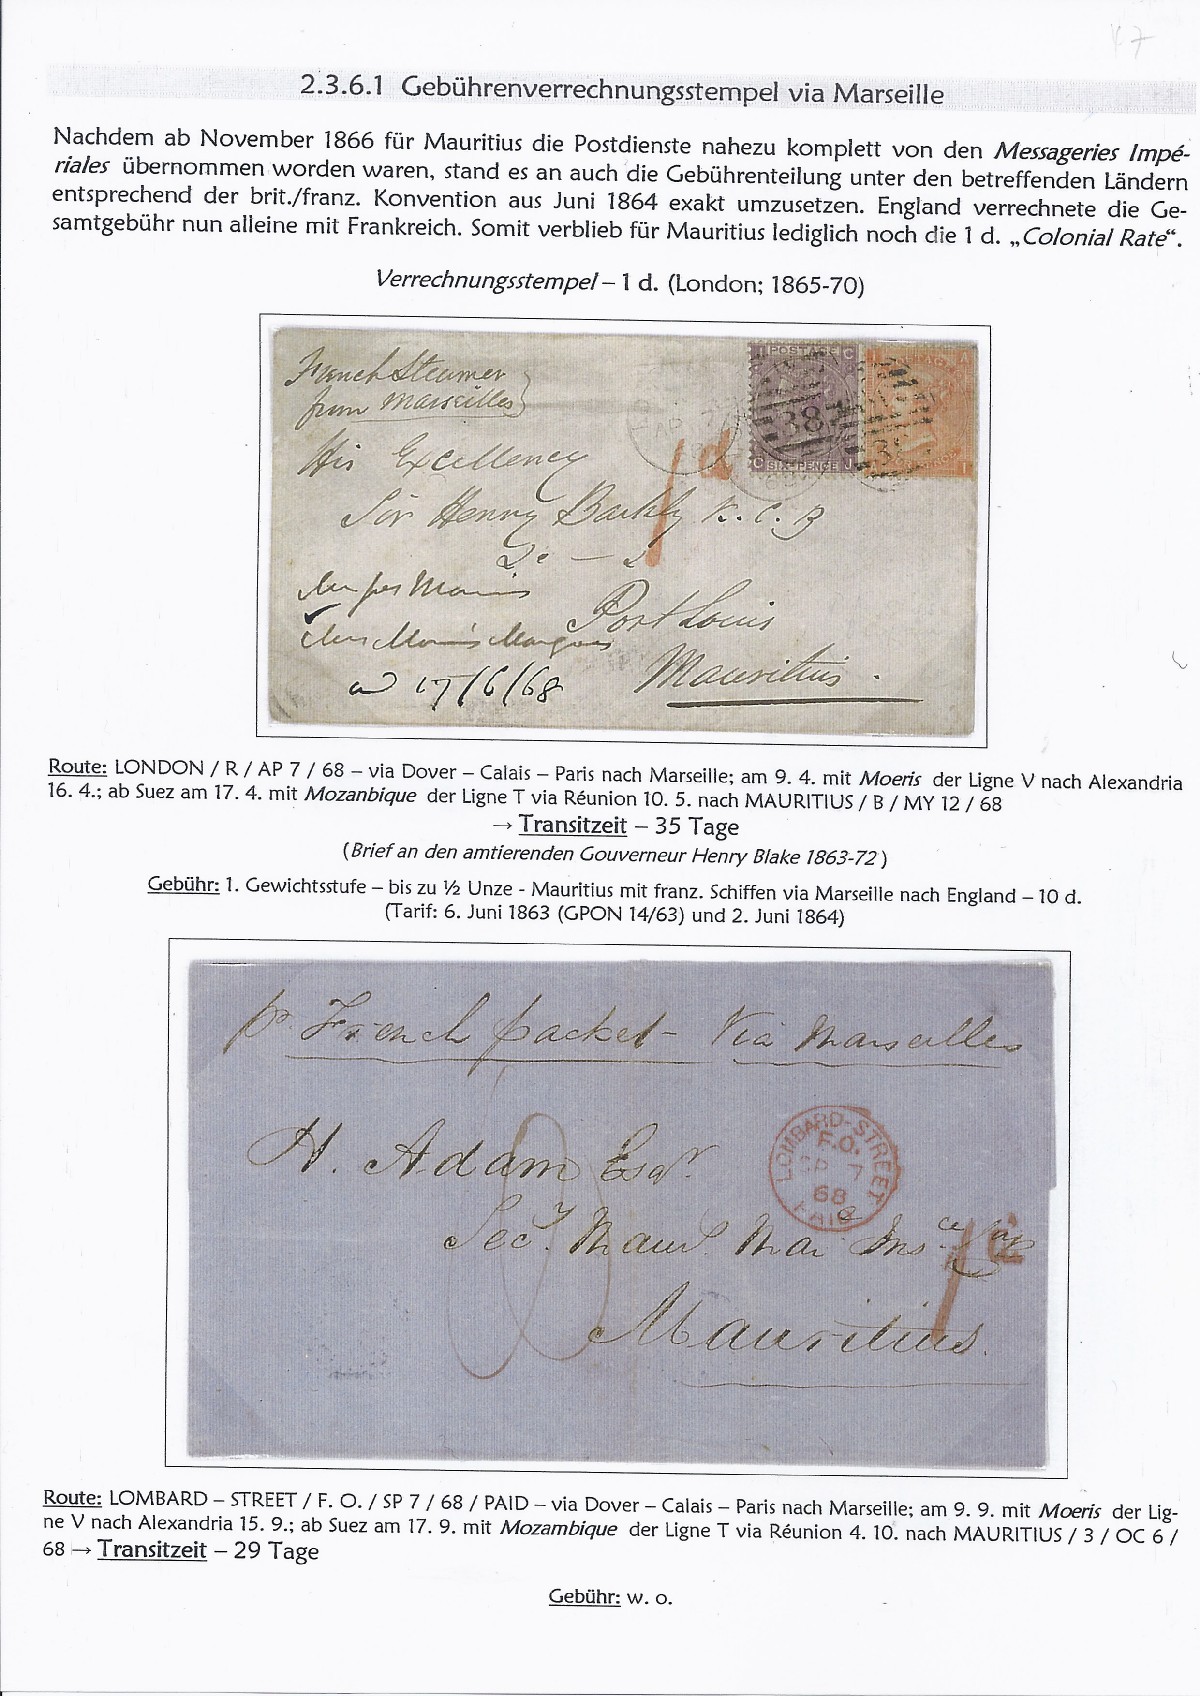 47
2.3.6.1 Gebührenverrechnungsstempel via Marseille
Nachdem ab November 1866 für Mauritius die Postdienste nahezu komplett von den Messageries Impé-
riales übernommen worden waren, stand es an auch die Gebührenteilung unter den betreffenden Ländern
entsprechend der brit./franz. Konvention aus Juni 1864 exakt umzusetzen. England verrechnete die Ge-
samtgebühr nun alleine mit Frankreich. Somit verblieb für Mauritius lediglich noch die 1 d. „Colonial Rate“.
Verrechnungsstempel – 1 d. (London; 1865-70)
French Steamer
from Marseilles
POSTAGE
C
38
C SIX-PENCE J
AP 7
1d
His Excellency
Sir Henry Barkly K.C.B
Port Louis
Mauritius
17/6/68
Route: LONDON / R / AP 7 / 68 – via Dover – Calais – Paris nach Marseille; am 9. 4. mit Moeris der Ligne V nach Alexandria
16. 4.; ab Suez am 17. 4. mit Mozanbique der Ligne T via Réunion 10. 5. nach MAURITIUS / B / MY 12 / 68
→ Transitzeit – 35 Tage
(Brief an den amtierenden Gouverneur Henry Blake 1863-72)
Gebühr: 1. Gewichtsstufe – bis zu ½ Unze - Mauritius mit franz. Schiffen via Marseille nach England – 10 d.
(Tarif: 6. Juni 1863 (GPON 14/63) und 2. Juni 1864)
pr French packet – Via Marseilles
LOMBARD-STREET
F.O.
SP 7
68
PAID
H. Adam Esqr.
Secy. Maur. Mar. Insce. Soc
1d
Mauritius.
Route: LOMBARD – STREET / F. O. / SP 7 / 68 / PAID – via Dover – Calais – Paris nach Marseille; am 9. 9. mit Moeris der Lig-
ne V nach Alexandria 15. 9.; ab Suez am 17. 9. mit Mozambique der Ligne T via Réunion 4. 10. nach MAURITIUS / 3 / OC 6 /
68 → Transitzeit – 29 Tage
Gebühr: w. o.